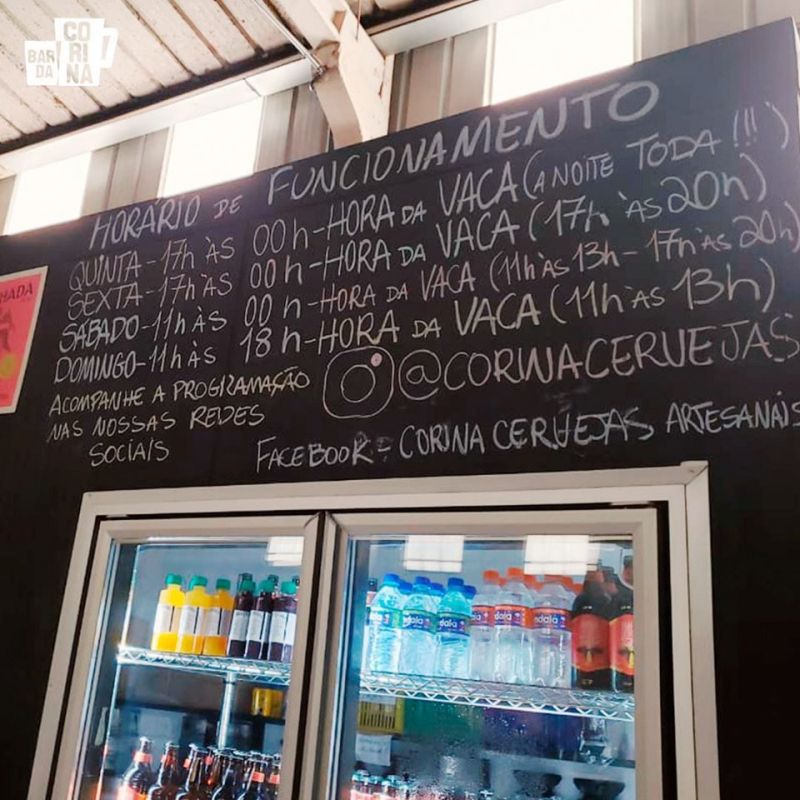 BAR DA CORINA
HORÁRIO DE FUNCIONAMENTO
QUINTA - 17h ÀS 00h - HORA DA VACA (A NOITE TODA!!!)
SEXTA - 17h ÀS 00h - HORA DA VACA (17h ÀS 20h)
SÁBADO - 11h ÀS 00h - HORA DA VACA (11h ÀS 13h - 17h ÀS 20h)
DOMINGO - 11h ÀS 18h - HORA DA VACA (11h ÀS 13h)
ACOMPANHE A PROGRAMAÇÃO
NAS NOSSAS REDES
SOCIAIS
@CORINACERVEJAS
FACEBOOK - CORINA CERVEJAS ARTESANAIS